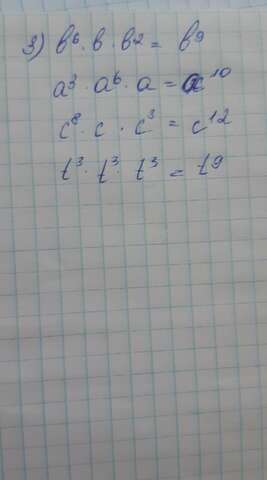 3) b⁶ · b · b² = b⁹
a³ · a⁶ · a = a¹⁰
c⁸ · c · c³ = c¹²
t³ · t³ · t³ = t⁹